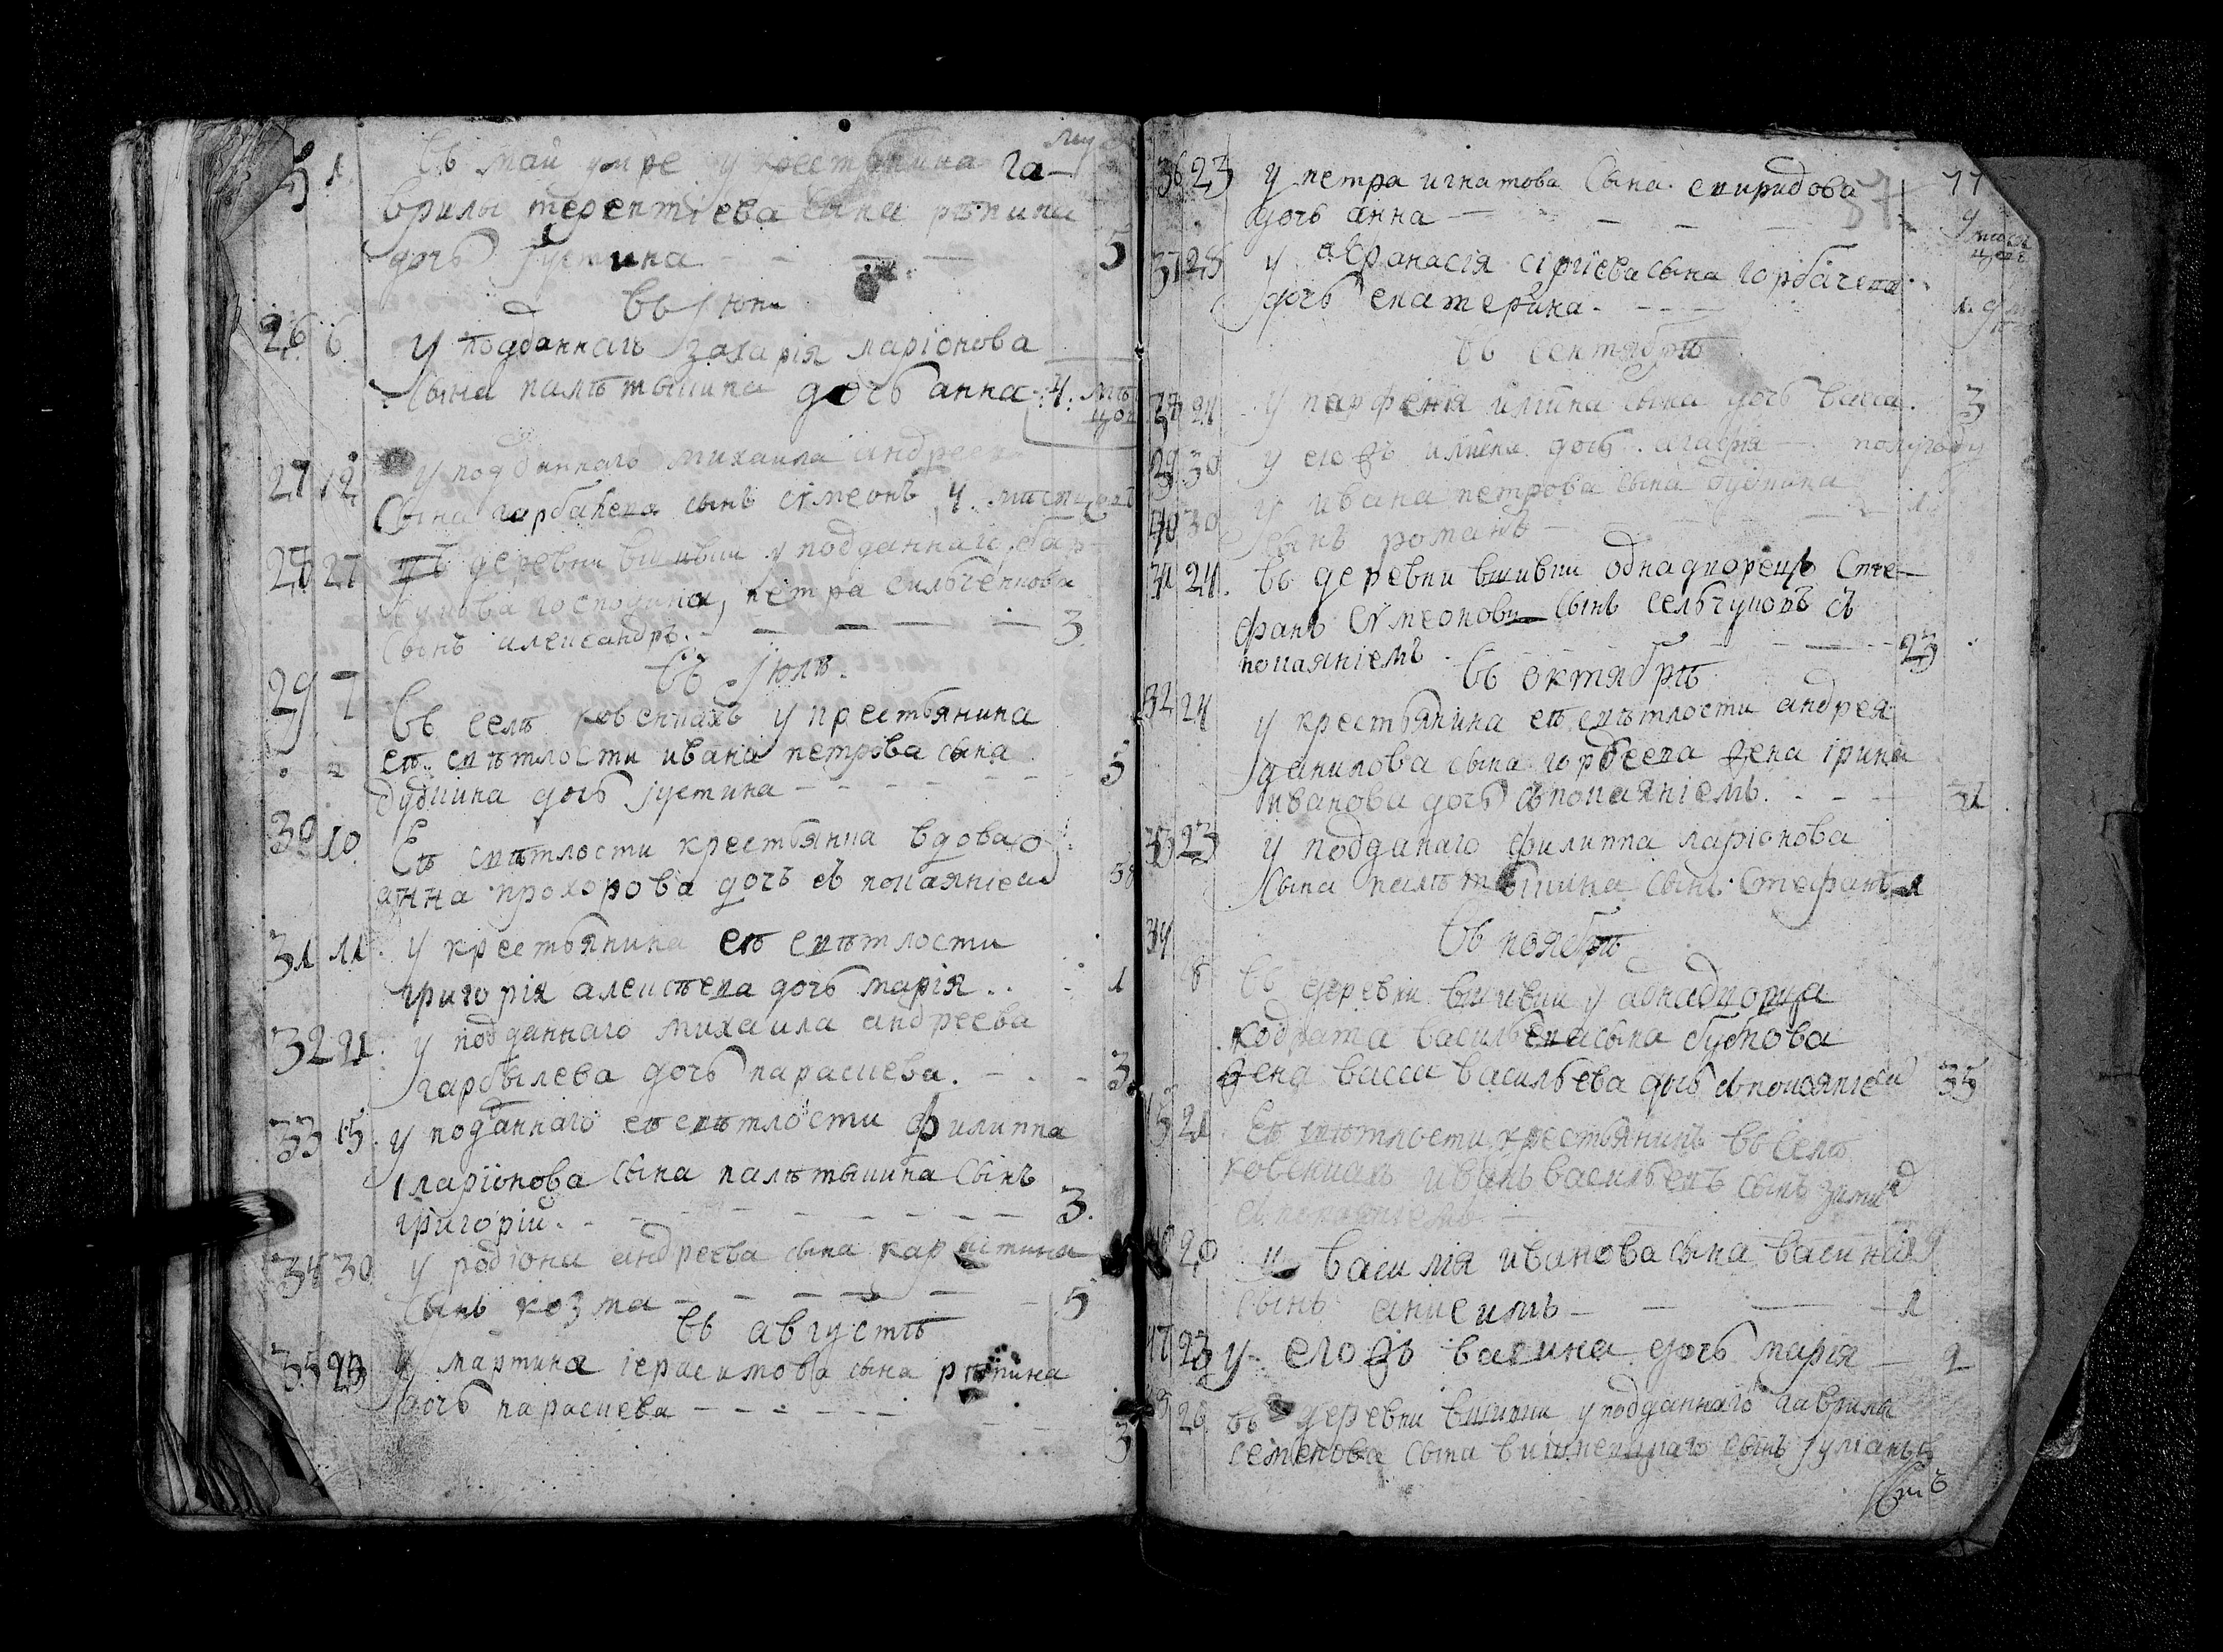 5 1. Въ май умре у крестьянина га-
врилы терентiева сына рѣпина
дочь Iустина 5
въ Iюнѣ
26 6 У подданнаго захарiя ларiонова
сына палѣтышина дочь анна 4. мѣ
27 12 у подданнаго михаила андреева
сына гарбачева сынъ сѵмеонъ 4.
28 27 деревни вшивки у подданнаго
господина, петра сильченкова
сынъ александръ. 3
въ Iюлѣ.
29 7 въ селѣ ковенкахъ у крестьянина
еѣ свѣтлости ивана петрова сына 5
дудкина дочь Iустина
30 10 Еѣ свѣтлости крестьянка вдова
анна прохорова дочь съ покаянiем
31 11. у крестьянина еѣ свѣтлости
григорiя алексѣева дочь марiя. 1
32 21. у подданнаго михаила андреева
гарбылева дочь параскева. 3
33 15. у поданнаго еѣ свѣтлости филиппа
iларiонова сына палѣтышина сынъ
григорiй. 3.
34 30 у родiона андреева сына
сынъ козма 5
въ августѣ
35 23 У мартина iерасимова сына рѣпина
дочь параскева 3
36 23 у петра игнатова сына спиридова 77
дочь анна
37 28 у афанасiя сергiева сына горбачева
дочь екатерина. 1.
въ сентябрѣ
у парфенiя илiина сына дочь васса. 3
30 у егожъ илiина дочь агафiя полугоду
40 30 у ивана петрова сына дудкина
сынъ романъ 1
24. въ деревни вшивки однадворецъ Сте-
фанъ сѵмеоновъ сынъ селчуновъ съ
покаянiемъ. 23
въ октябрѣ
32 24 у крестьянина еѣ свѣтлости андрея
данилова сына горбеева жена iрина
иванова дочь съ покаянiемъ.
23 у подданаго филиппа ларiонова
сына палѣтышина сынъ Стефанъ 1
34 въ ноябрѣ
8 въ деревни вшивки у аднадворца
кодрата васильева сына бутова
жена васса васильева дочь съ покаянiем 35
21. Еѣ свѣтлости крестьянинъ въ селѣ
ковенкахъ иванъ васильевъ сынъ
съ покаянiемъ
20 у василiя иванова сына васина
сынъ анисимъ 1
23 у егожъ васина дочь марiя 2
26 въ деревни вшивки у подданнаго гаврила
семенова сына сынъ iулiанъ